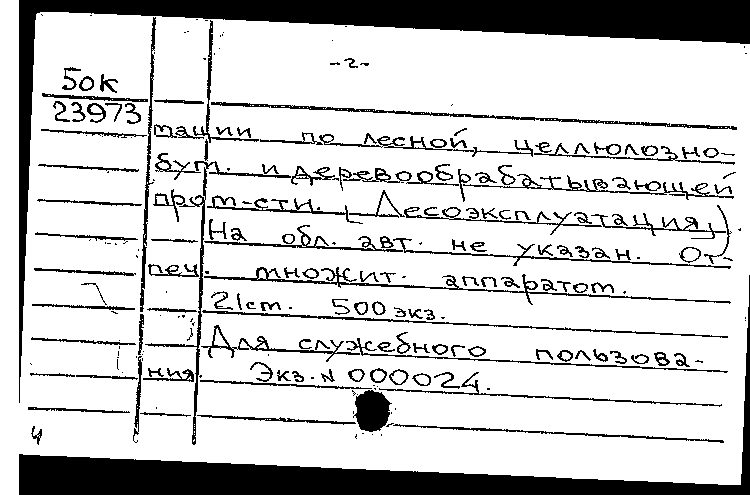 -2-
Бок
23973
тации по лесной, целлюлозно-
бум. и деревообрабатывающей
пром-сти. [Лесоэксплуатация]).
На обл. авт. не указан. От-
печ. множит. аппаратом.
21ст. 500 экз.
Для служебного пользова-
ния. Экз. N 000024.
4